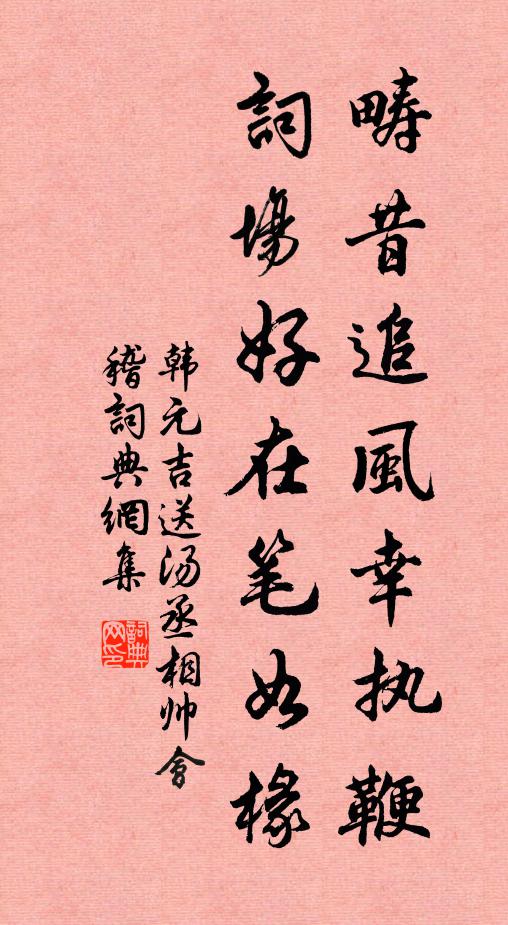 畴昔追風幸执鞭
詞場好在笔如椽
韩元吉送汤丞相帅會
稽詞典網集
詞典
网印